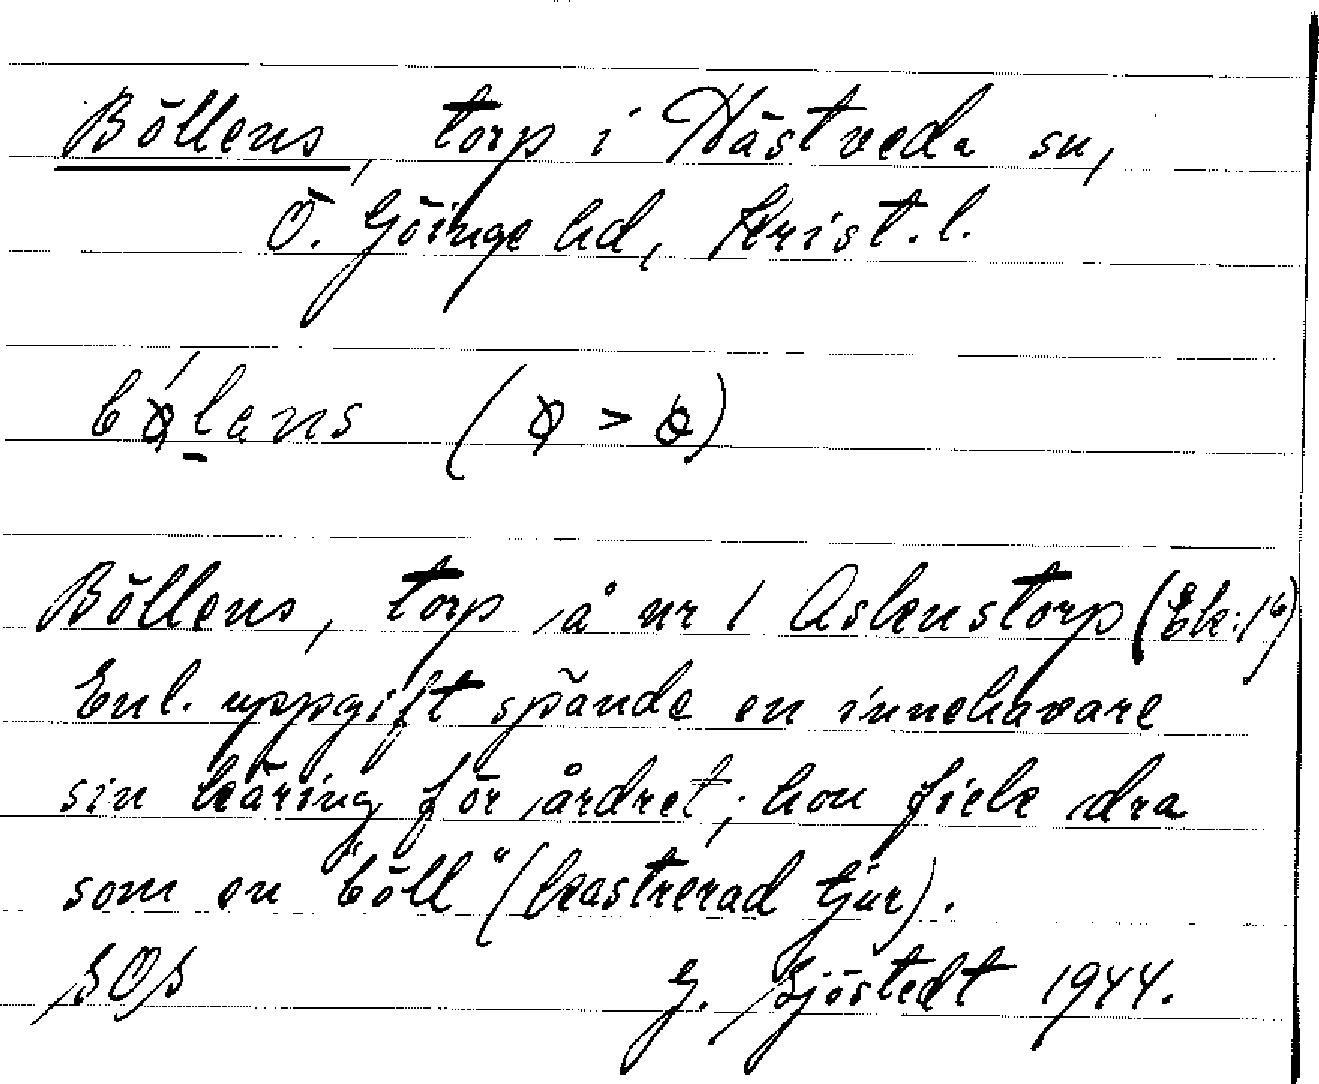 Böllens, torp i Hästveda sn,
Ö. Göinge hd, Krist. l.
Böllens, torp å nr 1 Askenstorp (Ek:16)
Enl. uppgift spände en innehavare
sin käring för årdret; hon fick dra
som en "böll" (kastrerad tjur).
SOS G. Sjöstedt 1944.